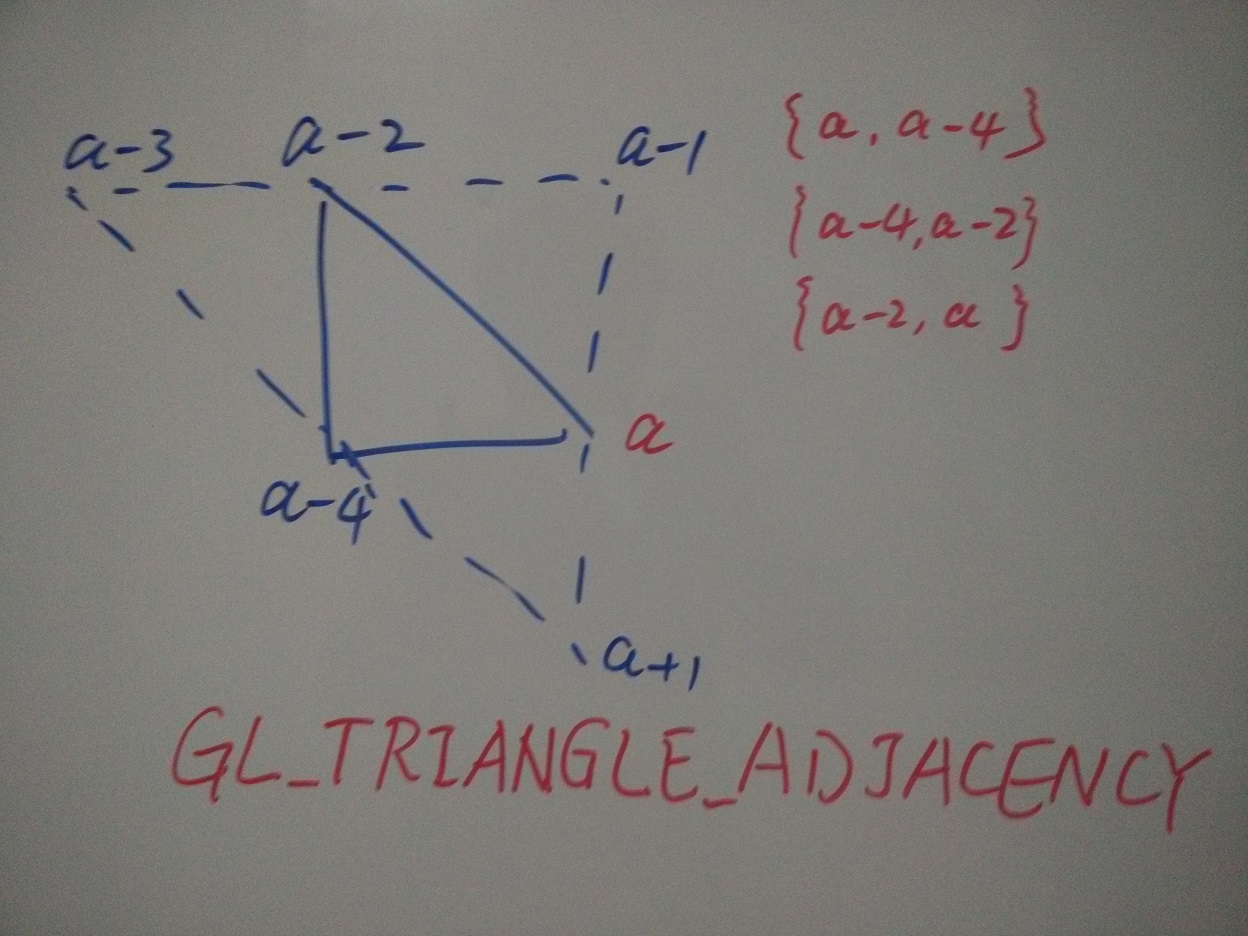 a-3
a-2
a-1
{a, a-4}
{a-4, a-2}
{a-2, a }
a
a-4
a+1
GL_TRIANGLE_ADJACENCY